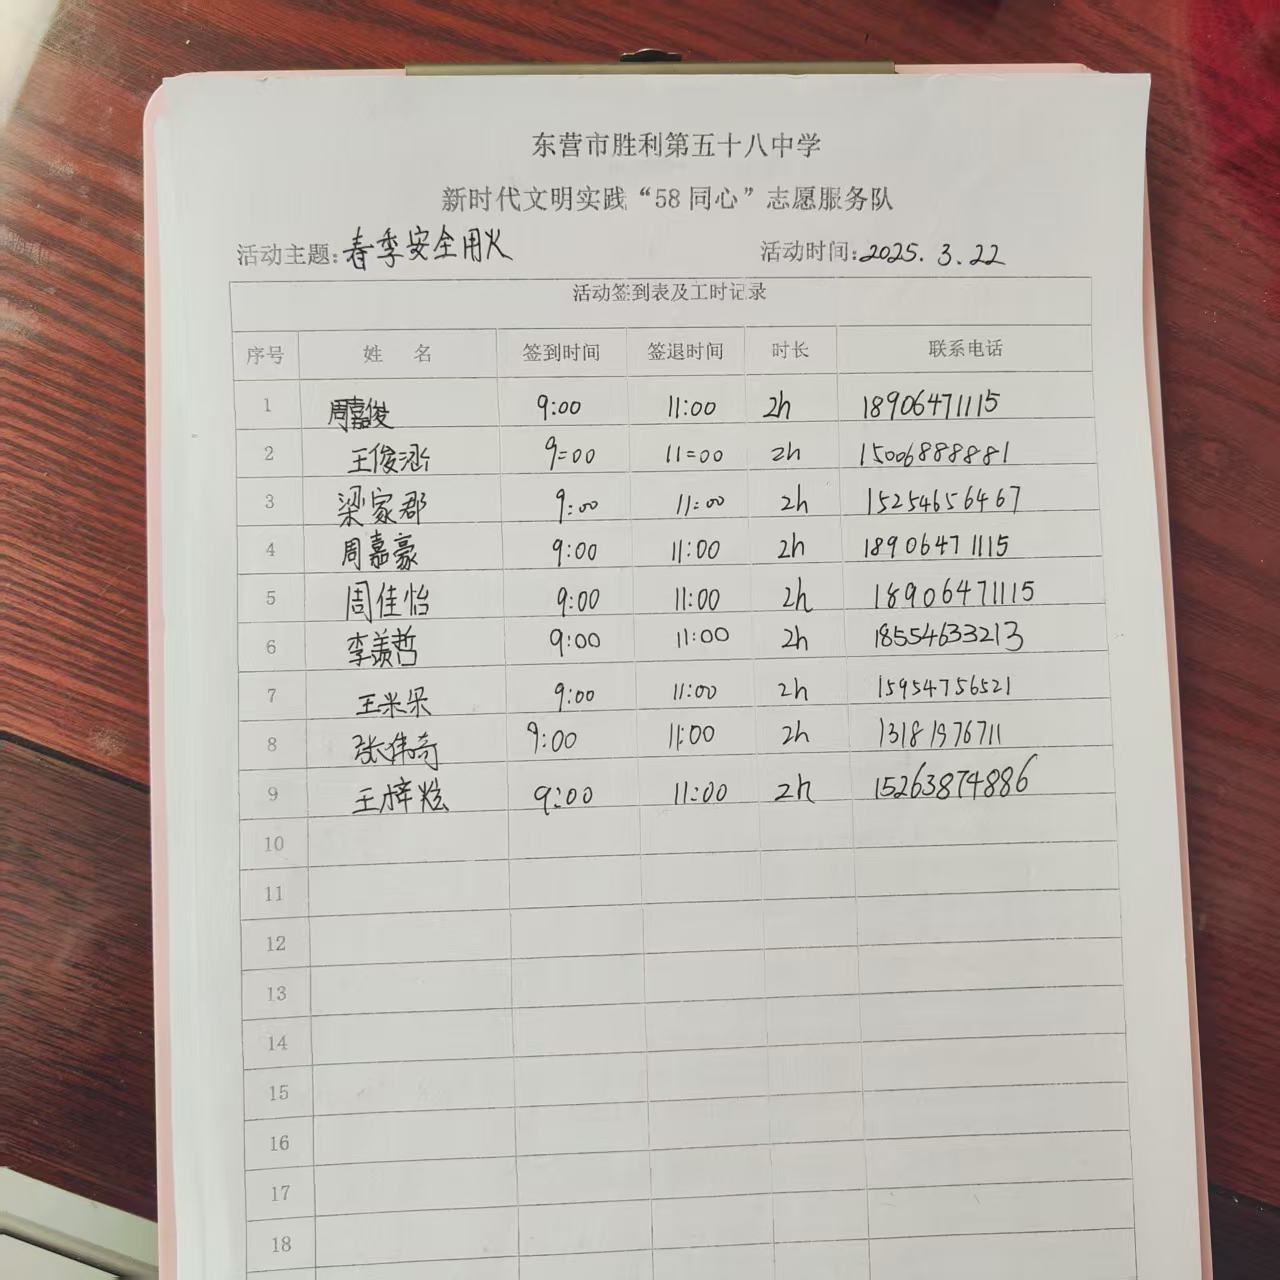 东营市胜利第五十八中学
新时代文明实践“58同心”志愿服务队
活动主题:春季安全用火 活动时间:2025.3.22
活动签到表及工时记录
序号 姓 名 签到时间 签退时间 时长 联系电话
1 周嘉俊 9:00 11:00 2h 18906471115
2 王俊涵 9=00 11=00 2h 15006888881
3 梁家郡 9:00 11:00 2h 15254656467
4 周嘉豪 9:00 11:00 2h 18906471115
5 周佳怡 9:00 11:00 2h 18906471115
6 李羡哲 9:00 11:00 2h 18554633213
7 王米杲 9:00 11:00 2h 15954756521
8 张伟奇 9:00 11:00 2h 13181976711
9 王梓炫 9:00 11:00 2h 15263874886
10
11
12
13
14
15
16
17
18